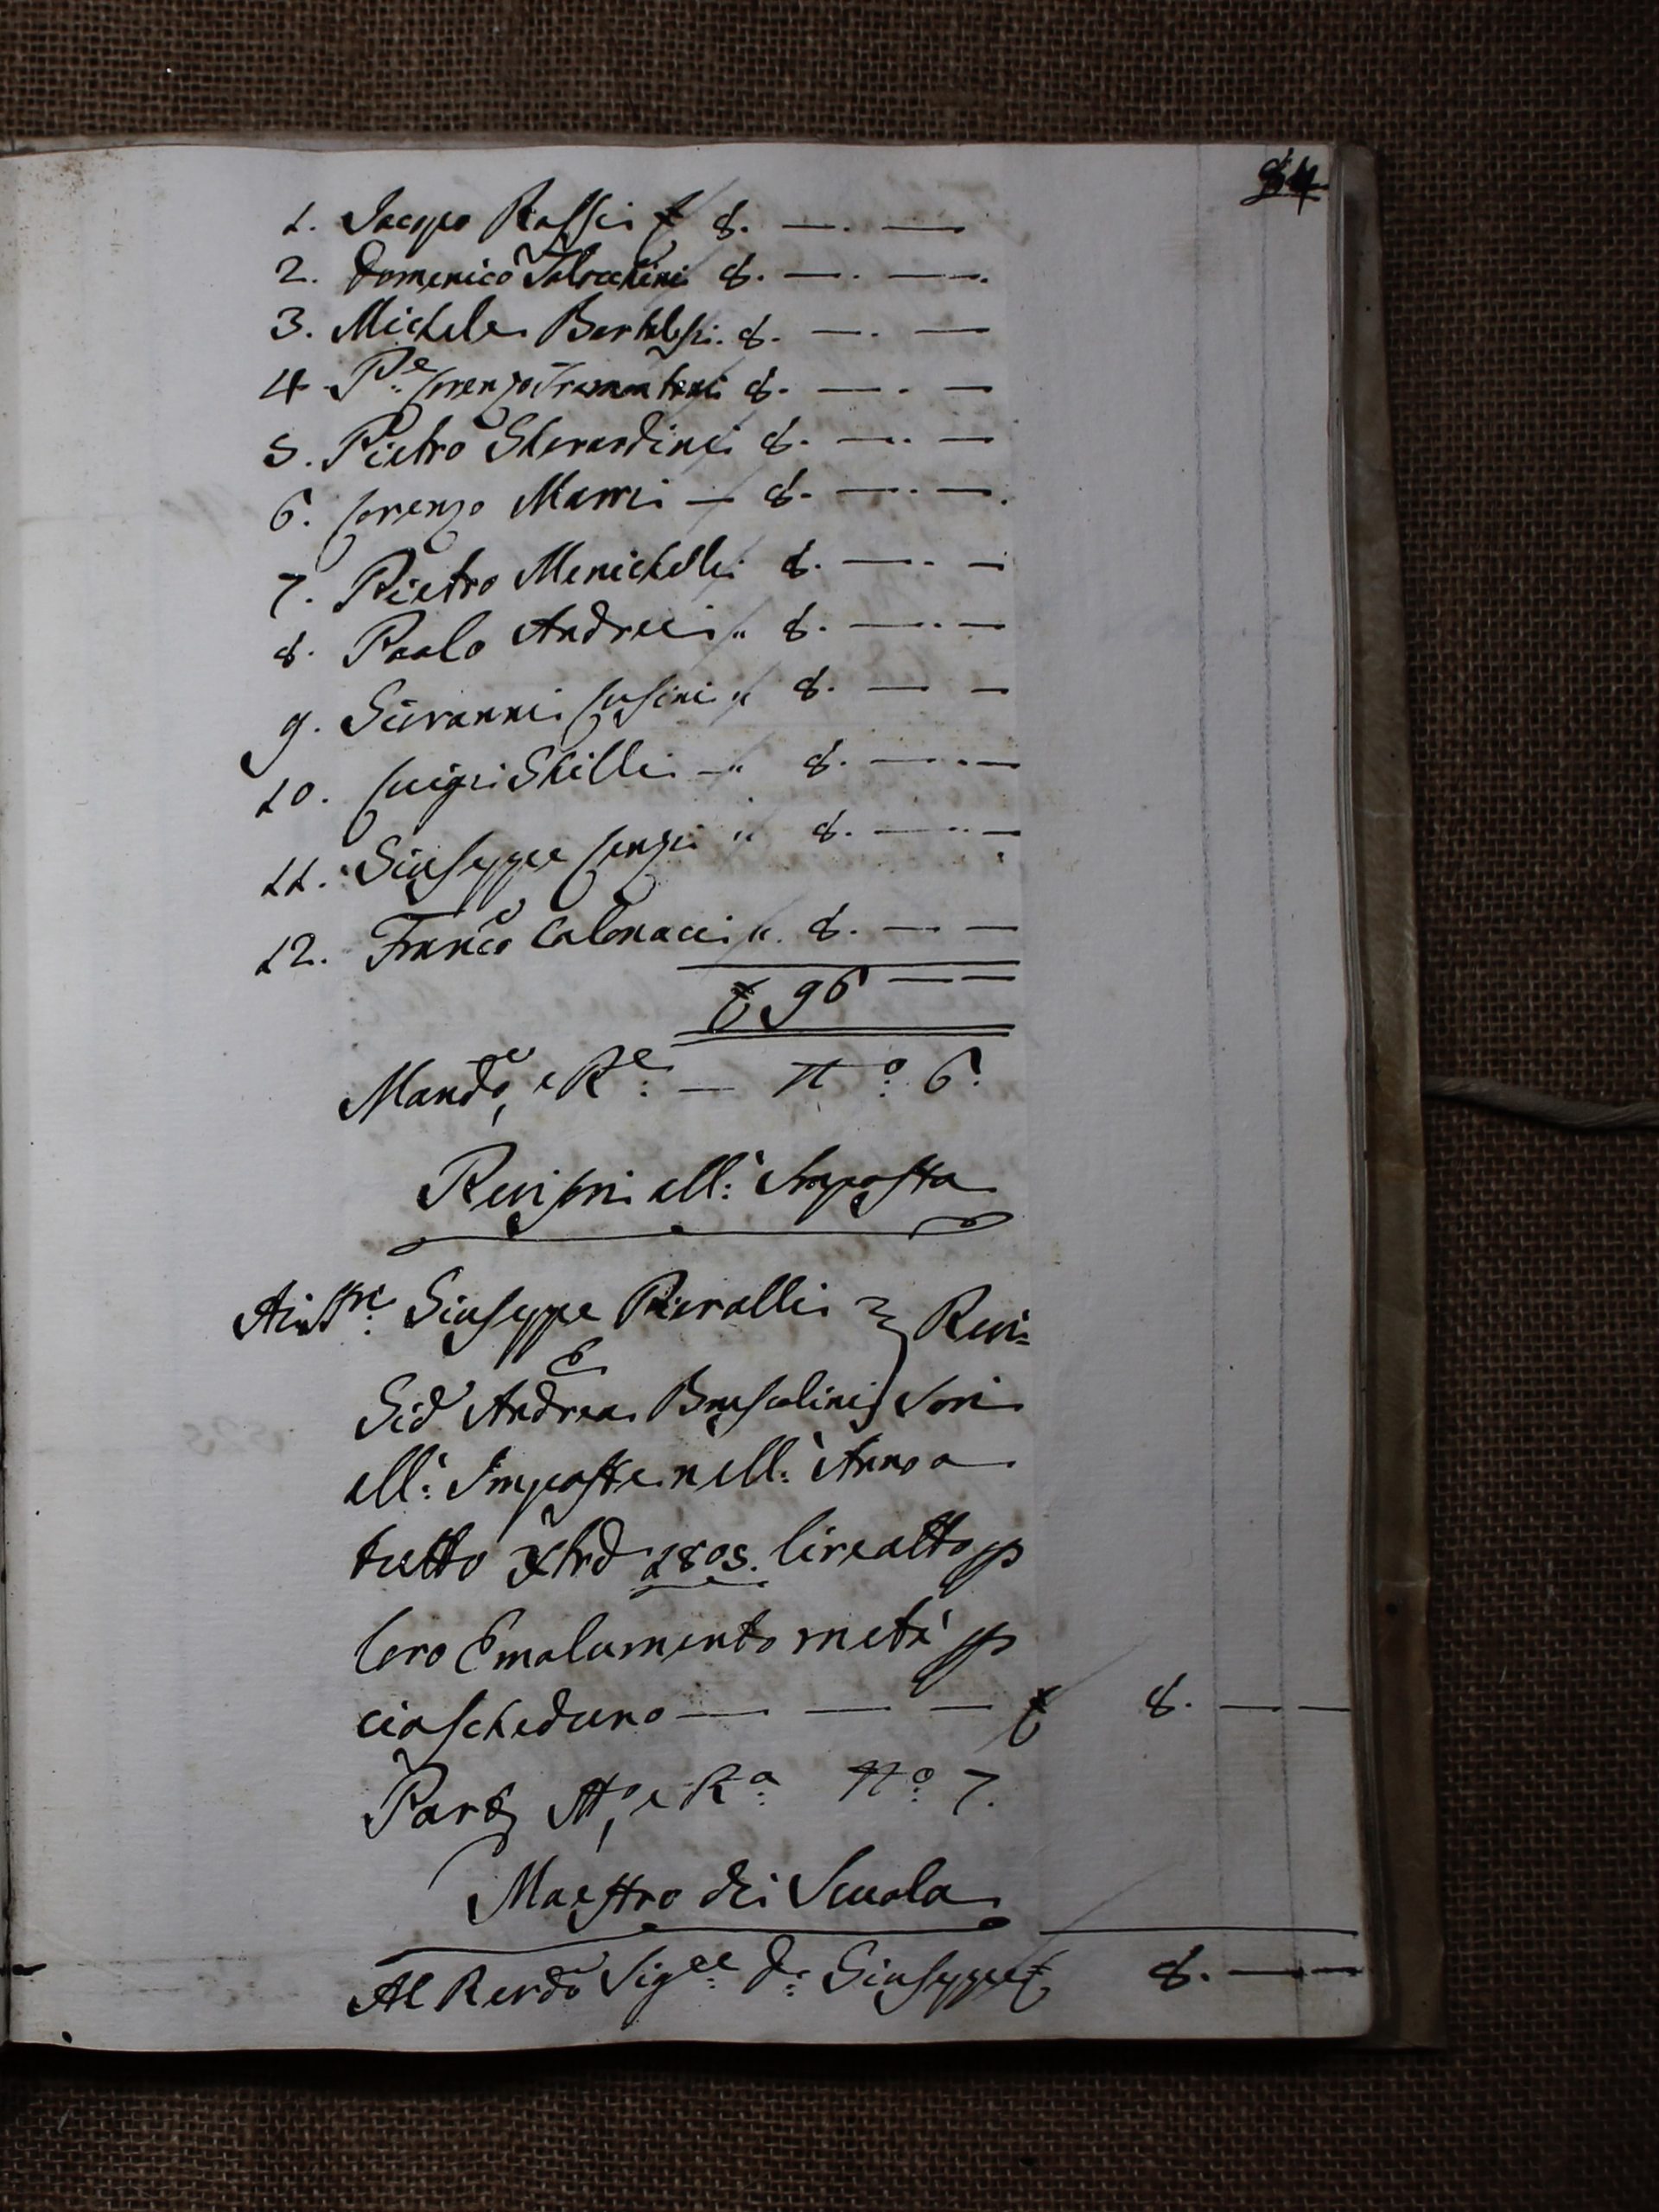 84
1. Jacopo Rossi £ 8. —. —
2. Domenico Talocchini 8. —. —.
3. Michele Bartolesi. 8. —. —
4. P.e Lorenzo Tramontani 8. —. —
5. Pietro Gherardini 8. —. —
6. Lorenzo Marri — 8. —. —.
7. Pietro Menichelli 8. —. —
8. Paolo Andrei " 8. —. —
9. Giovanni Susini " 8. — —
10. Luigi Ghilli — " 8. —. —
11. Giuseppe Lenzi " 8. —. —
12. Franco Calonaci ". 8. — —
£ 96 — —
Mando, e R.e: — N.o 6.
Revisori all: Imposta
Ai Sri: Giuseppe Pieralli } Revi=
E
Gio Andrea Brasolini } sori
all: Imposte nell: Anno a
tutto Xbrd 1805. lire otto p
loro Emolumento metà p
ciascheduno — — — £ 8. — —
Part, M, e R.a N.o 7.
Maestro di Scuola
Al Revdo Sig.re D: Giuseppe £ 8. — —